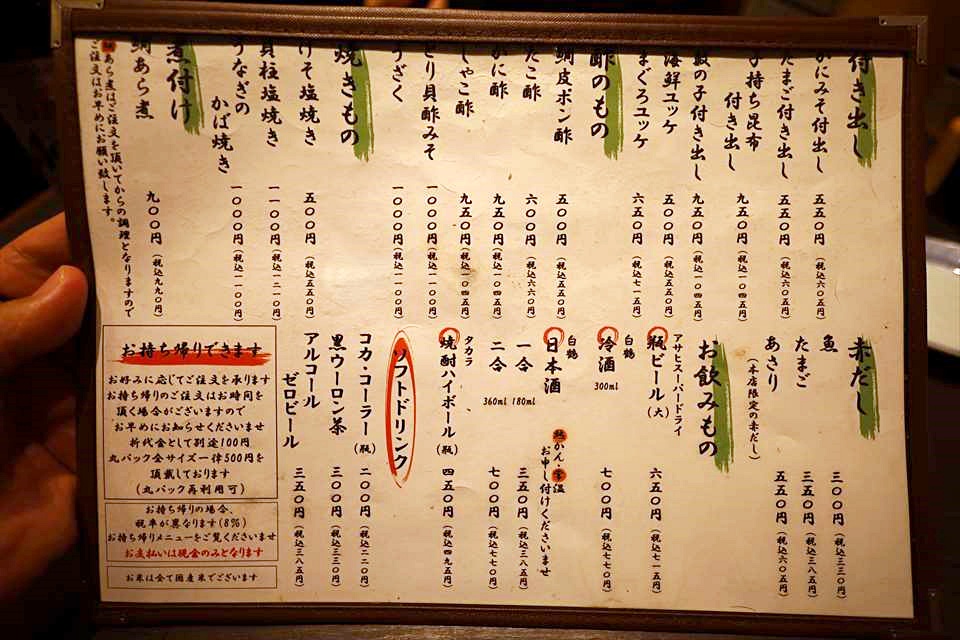 付き出し
かにみそ付出し 五五〇円（税込六〇五円）
たまご付き出し 五五〇円（税込六〇五円）
子持ち昆布
付き出し 九五〇円（税込一〇四五円）
数の子付き出し 九五〇円（税込一〇四五円）
海鮮ユッケ
まぐろユッケ 六五〇円（税込七一五円）
酢のもの
鯛皮ポン酢 五〇〇円（税込五五〇円）
たこ酢 六〇〇円（税込六六〇円）
かに酢 九五〇円（税込一〇四五円）
しゃこ酢 九五〇円（税込一〇四五円）
とり貝酢みそ 一〇〇〇円（税込一一〇〇円）
うざく 一〇〇〇円（税込一一〇〇円）
焼きもの
げそ塩焼き 五〇〇円（税込五五〇円）
貝柱塩焼き 一一〇〇円（税込一二一〇円）
うなぎの
かば焼き 一〇〇〇円（税込一一〇〇円）
煮付け
鯛あら煮 九〇〇円（税込九九〇円）
鯛あら煮はご注文を頂いてからの調理となりますので
ご注文はお早めにお願い致します。
赤だし
魚 三〇〇円（税込三三〇円）
たまご 三五〇円（税込三八五円）
あさり 五五〇円（税込六〇五円）
（本店限定の赤だし）
お飲みもの
アサヒスーパードライ
瓶ビール（大） 六五〇円（税込七一五円）
白鶴
冷酒 300ml 七〇〇円（税込七七〇円）
白鶴
日本酒
熱かん・常温
お申し付けくださいませ
一合 180ml 三五〇円（税込三八五円）
二合 360ml 七〇〇円（税込七七〇円）
タカラ
焼酎ハイボール（瓶） 四五〇円（税込四九五円）
ソフトドリンク
コカ・コーラー（瓶） 二〇〇円（税込二二〇円）
黒ウーロン茶 三〇〇円（税込三三〇円）
アルコール
ゼロビール 三五〇円（税込三八五円）
お持ち帰りできます
お好みに応じてご注文を承ります
お持ち帰りのご注文はお時間を
頂く場合がございますので
お早めにお知らせくださいませ
折代金として別途100円
丸パック全サイズ一律500円を
頂戴しております
（丸パック再利用可）
お持ち帰りの場合、
税率が異なります(8%)
お持ち帰りメニューをご覧くださいませ
お支払いは現金のみとなります
お米は全て国産米でございます